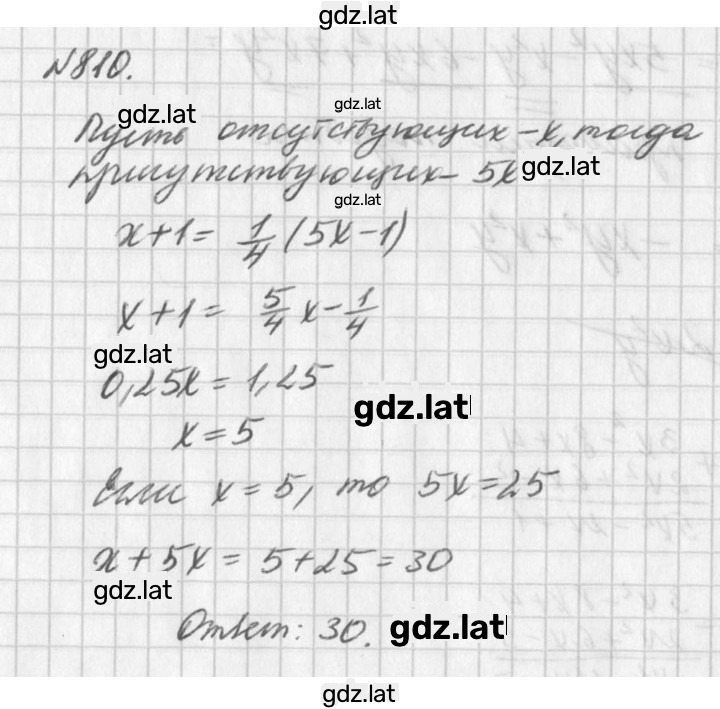 gdz.lat
№810.
gdz.lat
gdz.lat
Пусть отсутствующих - x, тогда
присутствующих - 5x
gdz.lat
gdz.lat
x+1= 1/4 (5x-1)
x+1= 5/4 x - 1/4
gdz.lat
0,25x = 1,25
gdz.lat
x = 5
Если x = 5, то 5x = 25
x + 5x = 5+25 = 30
gdz.lat
Ответ: 30.
gdz.lat
gdz.lat